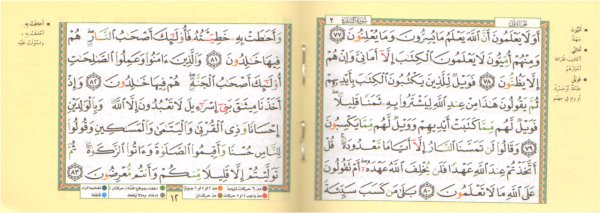 سُورَةُ البَقَرَةِ ٢
الجزء الأول
أَوَلَا يَعْلَمُونَ أَنَّ ٱللَّهَ يَعْلَمُ مَا يُسِرُّونَ وَمَا يُعْلِنُونَ ٧٧
وَمِنْهُمْ أُمِّيُّونَ لَا يَعْلَمُونَ ٱلْكِتَٰبَ إِلَّآ أَمَانِىَّ وَإِنْ هُمْ
إِلَّا يَظُنُّونَ ٧٨ فَوَيْلٌ لِّلَّذِينَ يَكْتُبُونَ ٱلْكِتَٰبَ بِأَيْدِيهِمْ
ثُمَّ يَقُولُونَ هَٰذَا مِنْ عِندِ ٱللَّهِ لِيَشْتَرُوا۟ بِهِۦ ثَمَنًا قَلِيلًا
فَوَيْلٌ لَّهُم مِّمَّا كَتَبَتْ أَيْدِيهِمْ وَوَيْلٌ لَّهُم مِّمَّا يَكْسِبُونَ
٧٩ وَقَالُوا۟ لَن تَمَسَّنَا ٱلنَّارُ إِلَّآ أَيَّامًا مَّعْدُودَةً قُلْ
أَتَّخَذْتُمْ عِندَ ٱللَّهِ عَهْدًا فَلَن يُخْلِفَ ٱللَّهُ عَهْدَهُۥٓ أَمْ نَقُولُونَ
عَلَى ٱللَّهِ مَا لَا تَعْلَمُونَ ٨٠ بَلَىٰ مَن كَسَبَ سَيِّئَةً
أميون
جهلة
أماني
أكاذيب افتراها
أحبارهم
فويل
هلكة أو حسرة
أو واد في جهنم
وَأَحَٰطَتْ بِهِۦ خَطِيٓـَٔتُهُۥ فَأُو۟لَٰٓئِكَ أَصْحَٰبُ ٱلنَّارِ هُمْ
فِيهَا خَٰلِدُونَ ٨١ وَٱلَّذِينَ ءَامَنُوا۟ وَعَمِلُوا۟ ٱلصَّٰلِحَٰتِ
أُو۟لَٰٓئِكَ أَصْحَٰبُ ٱلْجَنَّةِ هُمْ فِيهَا خَٰلِدُونَ ٨٢ وَإِذْ
أَخَذْنَا مِيثَٰقَ بَنِىٓ إِسْرَٰٓءِيلَ لَا تَعْبُدُونَ إِلَّا ٱللَّهَ وَبِٱلْوَٰلِدَيْنِ
إِحْسَانًا وَذِى ٱلْقُرْبَىٰ وَٱلْيَتَٰمَىٰ وَٱلْمَسَٰكِينِ وَقُولُوا۟
لِلنَّاسِ حُسْنًا وَأَقِيمُوا۟ ٱلصَّلَوٰةَ وَءَاتُوا۟ ٱلزَّكَوٰةَ ثُمَّ
تَوَلَّيْتُمْ إِلَّا قَلِيلًا مِّنكُمْ وَأَنتُم مُّعْرِضُونَ ٨٣
١٢
أحاطت به
أحدقت به
واستولت عليه